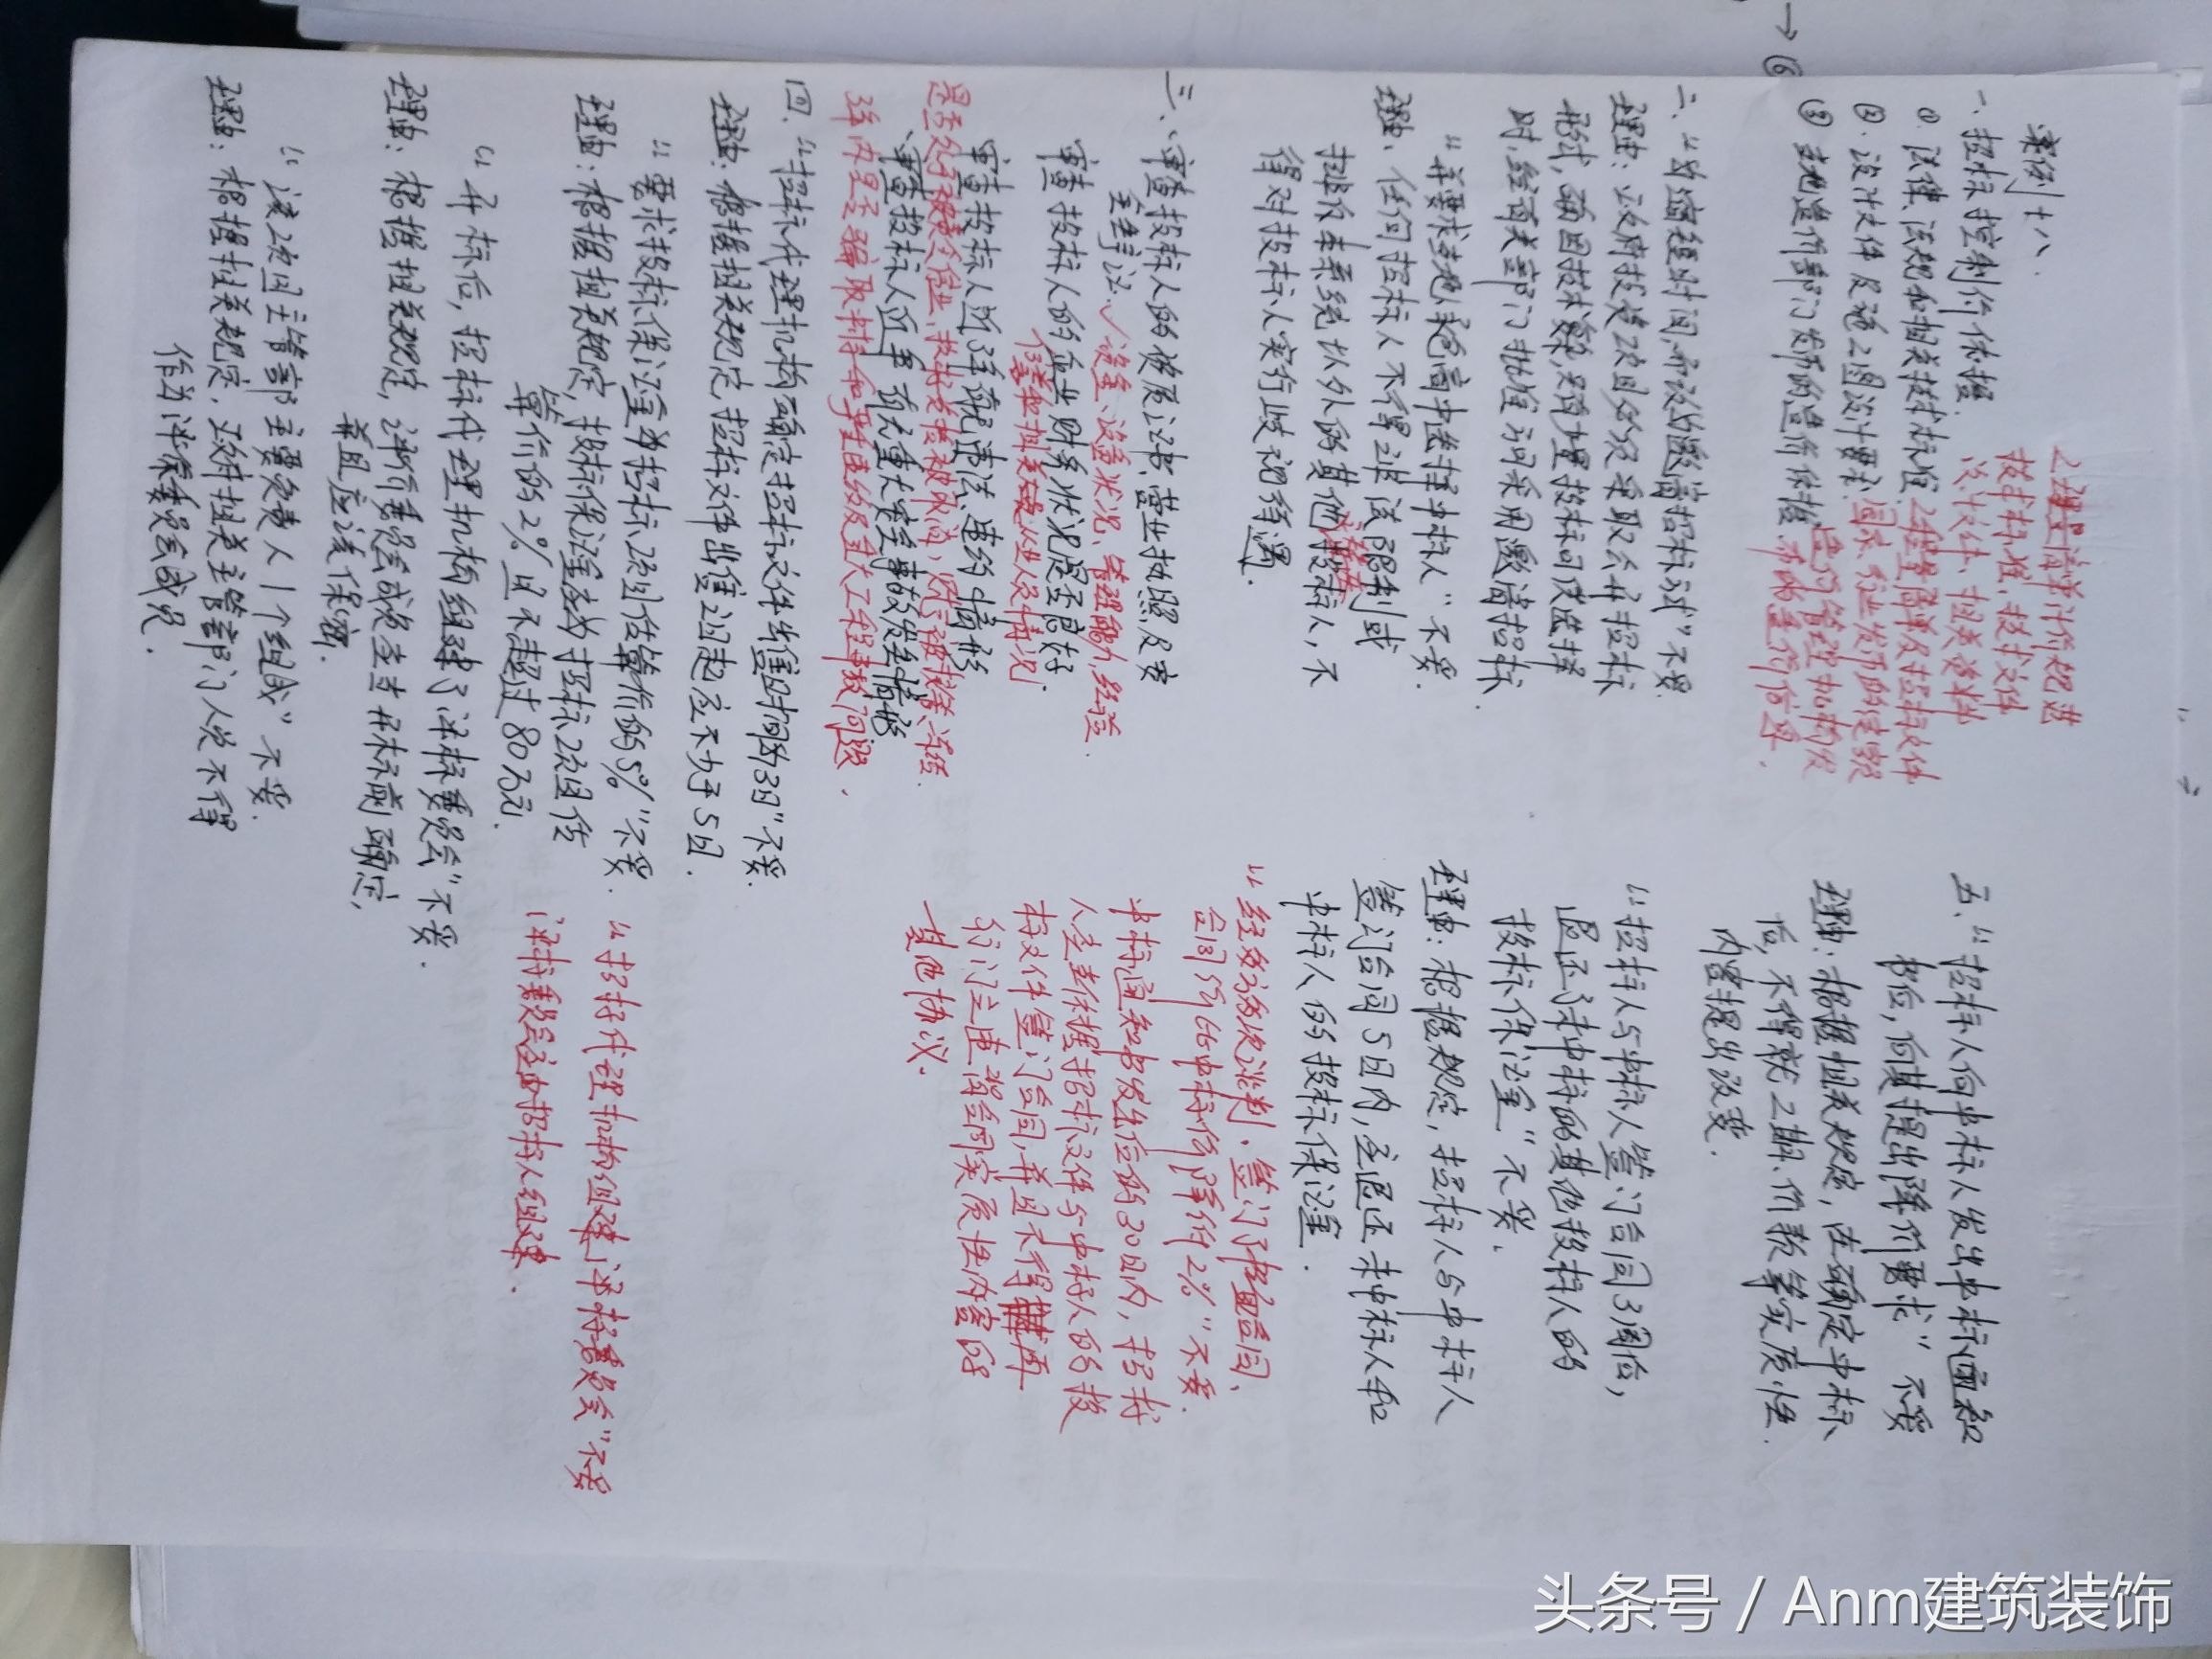 案例十八.
一、招标控制价依据.
①.法律、法规和相关技术标准
②.设计文件及施工图设计要求.
③ 当地造价部门发布的造价依据.
工程量清单计价规范
技术标准、技术文件
设计文件、相关资料
工程量清单及招标文件
国家、行业发布的定额
造价管理机构发
布的造价信息.
二、“为缩短时间,而议为邀请招标方式”不妥.
理由:政府投资项目必须采取公开招标
形式,确因技术复杂,只有少量投标可供选择
时,经有关部门批准方可采用邀请招标.
“并要求当地承包商中选择中标人”不妥.
理由:任何招标人不得非法限制或
排斥本系统以外的其他投标人,不
得对投标人实行歧视待遇.
三、审查投标人的资质证书、营业执照及安
全许可证.√资金、设备状况、管理能力,经验
审查投标人的企业财务状况是否良好
信誉和相关从业人员情况
审查投标人所有无违法、违约情形
是否处于被责令停业,投标资格被取消、财产被接管、冻结
审查投标人近年有无重大安全事故发生情形
三年内是否骗取中标和严重违约及重大工程事故问题.
四、“招标代理机构确定招标文件出售时间为3日”不妥.
理由:根据相关规定,招标文件出售之日起应不少于5日.
“要求投标保证金为招标项目估算价的5%”不妥.
理由:根据相关规定,投标保证金应为招标项目估
算价的2%且不超过80万元.
“开标后,招标代理机构组建了评标委员会”不妥.
理由:根据相关规定,评标委员会成员应当在开标前确定,
并且应该保密.
“该项目主管部主要负责人1个组成”不妥.
理由:根据相关规定,政府相关主管部门人员不得
作为评标委员会成员.
五、“招标人向中标人发出中标通知
书后,向其提出降价要求”不妥
理由:根据相关规定,在确定中标
后,不得就工期、价款等实质性
内容提出改变.
“招标人与中标人签订合同3周后,
退还了未中标的其他投标人的
投标保证金”不妥.
理由:根据规定,招标人与中标人
签订合同5日内,应退还未中标人和
中标人的投标保证金.
“经多次谈判,签订了书面合同,
合同价比中标价降价2%”不妥.
中标通知书发出后的30日内,招标
人应当依据招标文件与中标人的投
标文件签订合同,并且不得再
行订立违背合同实质性内容的
其他协议.
“招标代理机构组建评标委员会”不妥
评标委员会应由招标人组建.
→⑥
头条号 / Anm建筑装饰